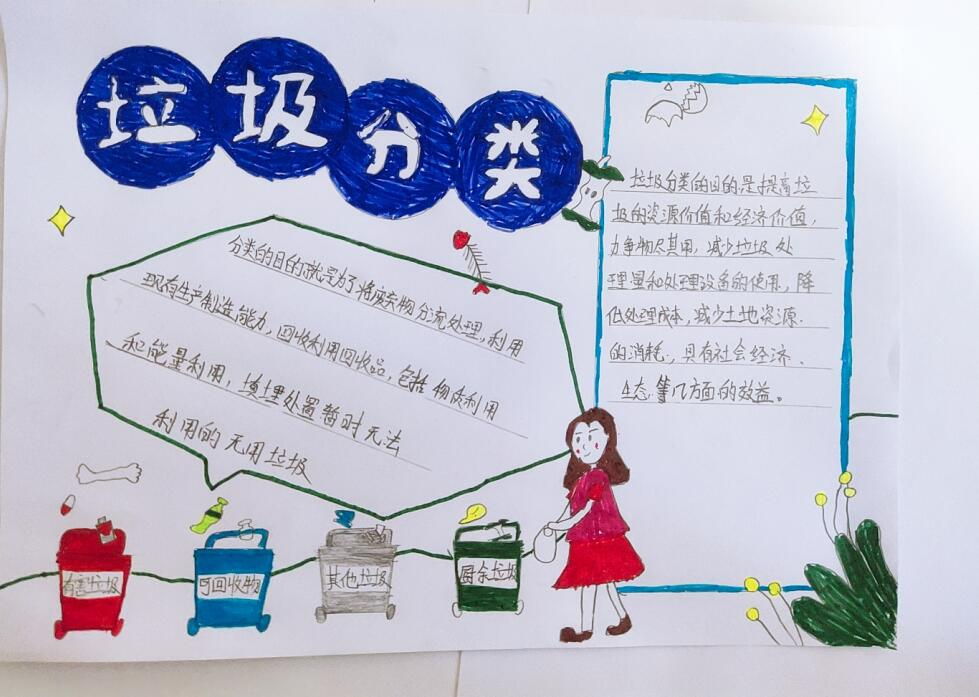 垃圾分类
分类的目的就是为了将废弃物分流处理,利用
现有生产制造能力,回收利用回收品,包括物质利用
和能量利用,填埋处置暂时无法
利用的无用垃圾
垃圾分类的目的是提高垃
圾的资源价值和经济价值,
力争物尽其用,减少垃圾处
理量和处理设备的使用,降
低处理成本,减少土地资源.
的消耗.,具有社会经济.
生态.等几方面的效益。
有害垃圾
可回收物
其他垃圾
厨余垃圾